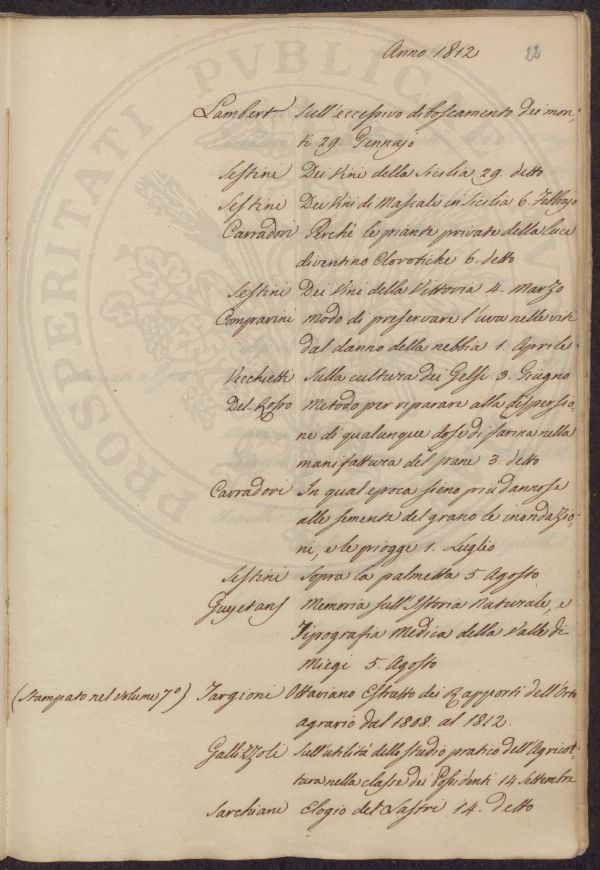 Anno 1812 22
Lambert Sull'eccessivo diboscamento dei mon-
ti 29 Gennajo
Sestini Dei Vini della Sicilia 29. detto
Sestini Dei Vini di Mascali in Sicilia 6. Febbrajo
Carradori Perché le piante private della luce
diventino Clorotiche 6. detto
Sestini Dei Vini della Vittoria 4. Marzo
Comparini Modo di preservare l'uva nelle viti
dal danno della nebbia 1. Aprile
Vecchietti Sulla cultura dei Gelsi 3. Giugno
Del-Rosso Metodo per riparare alla dispersio-
ne di qualunque dose di farina nella
manifattura del pane 3. detto
Carradori In qual epoca sieno più dannose
alle semente del grano le inondazio-
ni, e le piogge 1. Luglio
Sestini Sopra la palmetta 5. Agosto
Guyetans Memoria sull'Istoria Naturale, e
Tipografia Medica della Valle di
Miegi 5. Agosto
(Stampato nel volume 7º) Targioni Ottaviano Estratto dei Rapporti dell'Orto
agrario dal 1808. al 1812.
Gallizzoli Sull'utilità dello studio pratico dell'Agricol-
tura nella classe dei Possidenti 14 Settembre
Sarchiani Elogio del Lastri 14. detto
PROSPERITATI PUBLICAE